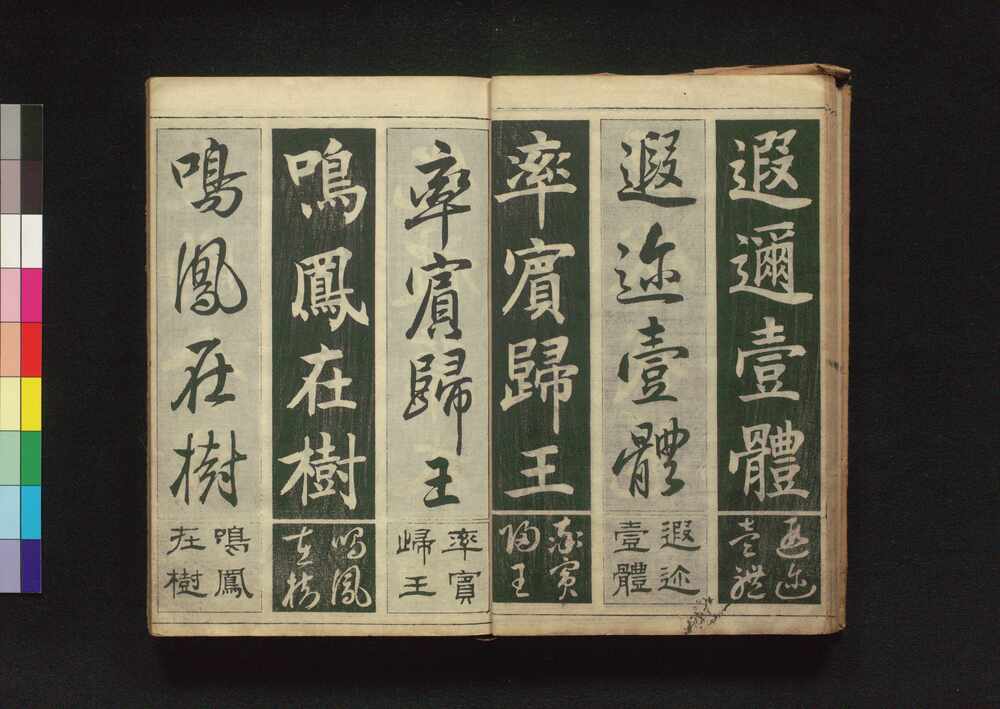 遐邇壹體
遐邇
壹體
遐迩壹體
遐迩
壹體
率賓歸王
率賓
歸王
率賓歸王
率賓
歸王
鳴鳳在樹
鳴鳳
在樹
鳴鳳在樹
鳴鳳
在樹